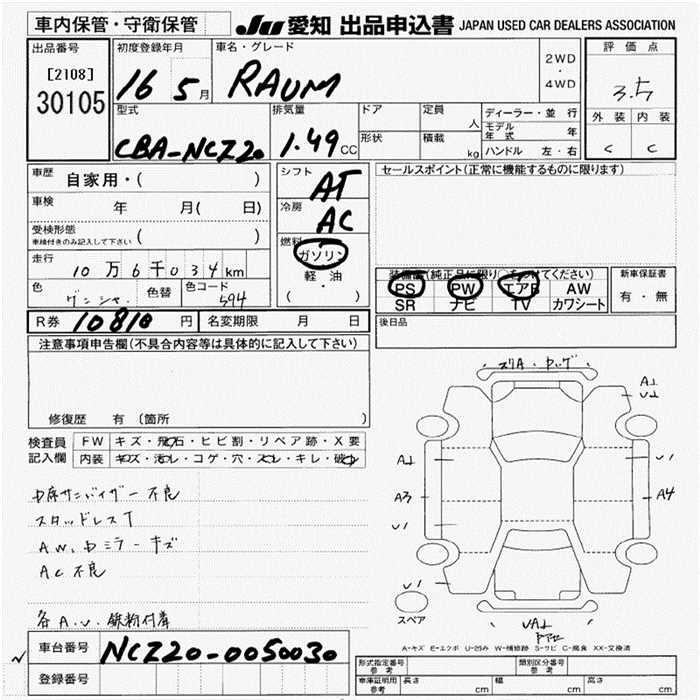 車内保管・守衛保管
JU 愛知 出品申込書 JAPAN USED CAR DEALERS ASSOCIATION
出品番号
[2108]
30105
初度登録年月
16 5月
車名・グレード
RAUM
2WD
・
4WD
評価点
3.5
外装 内装
C C
型式
CBA-NCZ20
排気量
1.49 CC
ドア
形状
定員 人
積載 kg
ディーラー・並行
モデル年式 年
ハンドル 左・右
車歴 自家用・( )
車検 年 月( 日)
受検形態
車検付きのみ記入して下さい ( )
走行 10万6千034km
色
色替
色コード 594
シフト AT
冷房 AC
燃料
ガソリン
軽・油
( ・ )
セールスポイント(正常に機能するものに限ります)
装備欄(純正品に限り○をつけてください)
PS PW エアB AW
SR ナビ TV カワシート
新車保証書
有・無
後日品
R券 10810円
名変期限 月 日
注意事項申告欄(不具合内容等は具体的に記入して下さい)
修復歴 有(箇所 )
検査員記入欄
FW キズ・飛石・ヒビ割・リペア跡・X要
内装 キズ・汚レ・コゲ・穴・スレ・キレ・破レ
サンバイザー不良
スタッドレスT
A.W, ミラーキズ
AC不良
各A.U. 鉄粉付着
A1
U2
A2
A3
U1
U1
U1
A4
U1
スペア
A-キズ E-エクボ U-凹み W-補修跡 S-サビ C-腐食 XX-交換済
車台番号 NCZ20-0050030
登録番号
形式指定番号 参考
類別区分番号 参考
車庫証明用 参考
長さ cm
幅 cm
高さ cm